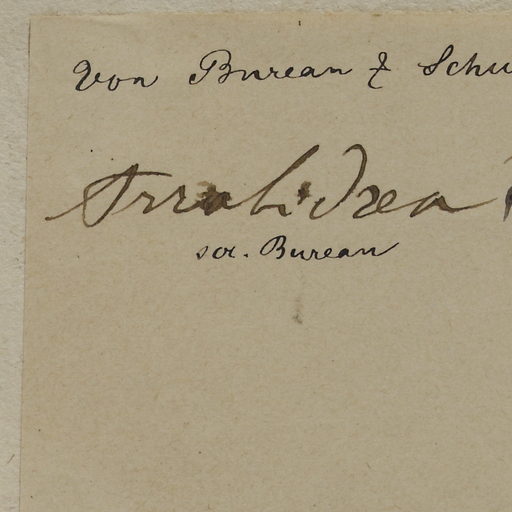 Von Bureau & Schu
Arrabidaea
scr. Bureau